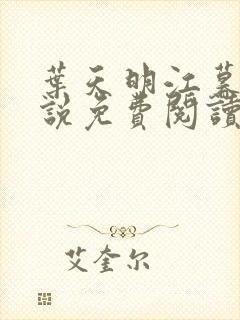 葉天明江慕
說免費閱讀
艾奎尔